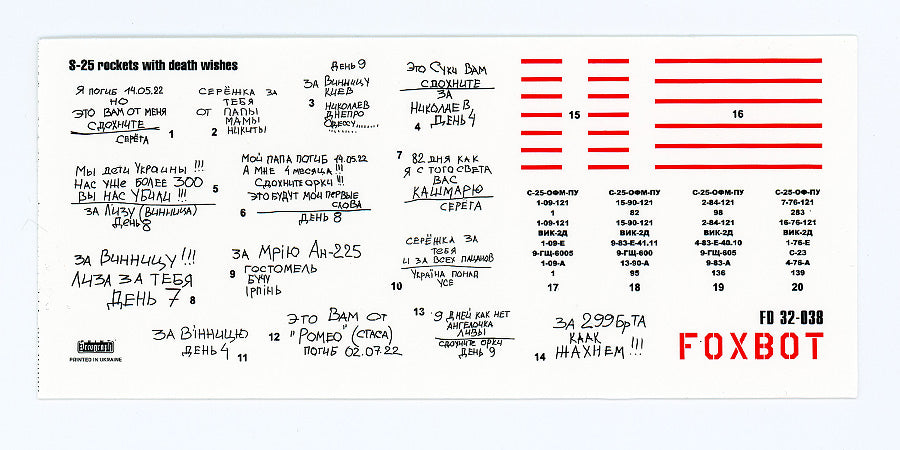 S-25 rockets with death wishes
Я погиб 14.05.22
НО
ЭТО ВАМ ОТ МЕНЯ
СДОХНИТЕ
СЕРЁГА
1
СЕРЁЖКА ЗА
ТЕБЯ
ОТ ПАПЫ
МАМЫ
НИКИТЫ
2
ДЕНЬ 9
ЗА ВИННИЦУ
КИЕВ
НИКОЛАЕВ
ДНЕПРО
ОДЕССУ
3
ЭТО СУКИ ВАМ
СДОХНИТЕ
ЗА
НИКОЛАЕВ
ДЕНЬ 4
4
МЫ ДЕТИ УКРАИНЫ !!!
НАС УЖЕ БОЛЕЕ 300
ВЫ НАС УБИЛИ !!!
ЗА ЛИЗУ (ВИННИЦА)
ДЕНЬ 8
5
МОЙ ПАПА ПОГИБ 14.05.22
А МНЕ 4 МЕСЯЦА !!!
СДОХНИТЕ ОРКИ !!!
ЭТО БУДУТ МОИ ПЕРВЫЕ
СЛОВА
ДЕНЬ 8
6
7
82 ДНЯ КАК
Я С ТОГО СВЕТА
ВАС
КАШМАРЮ
СЕРЕГА
ЗА ВИННИЦУ !!!
ЛИЗА ЗА ТЕБЯ
ДЕНЬ 7
8
ЗА МРІЮ АН-225
ГОСТОМЕЛЬ
БУЧУ
ІРПІНЬ
9
СЕРЁЖКА ЗА
ТЕБЯ
И ЗА ВСЕХ ПАЦАНОВ
УКРАЇНА ПОНАД
УСЕ
10
ЗА ВІННИЦЮ
ДЕНЬ 4
11
ЭТО ВАМ ОТ
"РОМЕО" (СТАСА)
ПОГИБ 02.07.22
12
13
9 ДНЕЙ КАК НЕТ
АНГЕЛОЧКА
ЛИЗЫ
СДОХНИТЕ ОРКИ
ДЕНЬ 9
ЗА 299 БрТА
КААК
ЖАХНЕМ !!!
14
15
16
С-25-ОФМ-ПУ
1-09-121
1
1-09-121
ВИК-2Д
1-09-Е
9-ГЩ-6005
1-09-А
1
17
С-25-ОФМ-ПУ
15-90-121
82
15-90-121
ВИК-2Д
9-83-Е-41.11
9-ГЩ-600
13-90-А
95
18
С-25-ОФМ-ПУ
2-84-121
98
2-84-121
ВИК-2Д
4-83-Е-40.10
9-ГЩ-6005
9-83-А
136
19
С-25-ОФ-ПУ
7-76-121
283
16-76-121
ВИК-2Д
1-76-Е
С-23
4-76-А
139
20
PRINTED IN UKRAINE
FD 32-038
FOXBOT